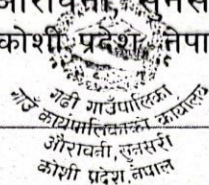 औरावनी, सुनसरी
कोशी प्रदेश, नेपाल
गढी गाउँपालिका
गाउँ कार्यपालिकाको कार्यालय
औरावनी, सुनसरी
कोशी प्रदेश, नेपाल